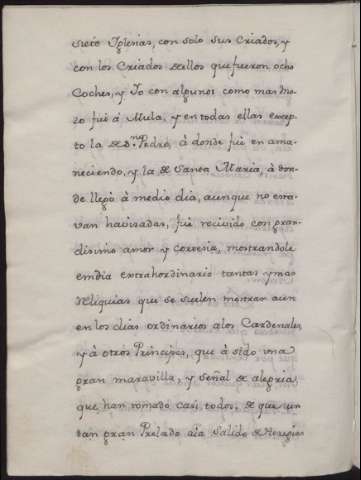 siete Iglesias, con solo sus Criados, y
con los Criados dellos que fueron ocho
Coches, y Yo con algunos como mas mo-
zo fui á Mula, y en todas ellas excep-
to la de Sn. Pedro, á donde fue en ama-
neciendo, y la de Santa Maria, á don-
de llegó á medio dia, aunque no esta-
van havisadas, fue recivido con gran-
disimo amor y cortesia, mostrandole
en dia extrahordinario tantas y mas
Reliquias que se suelen mostrar aun
en los dias ordinarios a los Cardenales,
y á otros Principes, que á sido una
gran maravilla, y señal de alegria,
que han tomado casi todos, de que un
tan gran Prelado aia Salido de